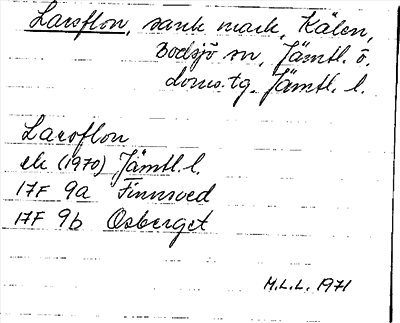 Larsflon, sank mark, Kälen,
Bodsjö sn, Jämtl. ö.
doms.tg. Jämtl. l.
Larsflon
ek (1970) Jämtl. l.
17F 9a Finnsved
17F 9b Osberget
M.L.L. 1971